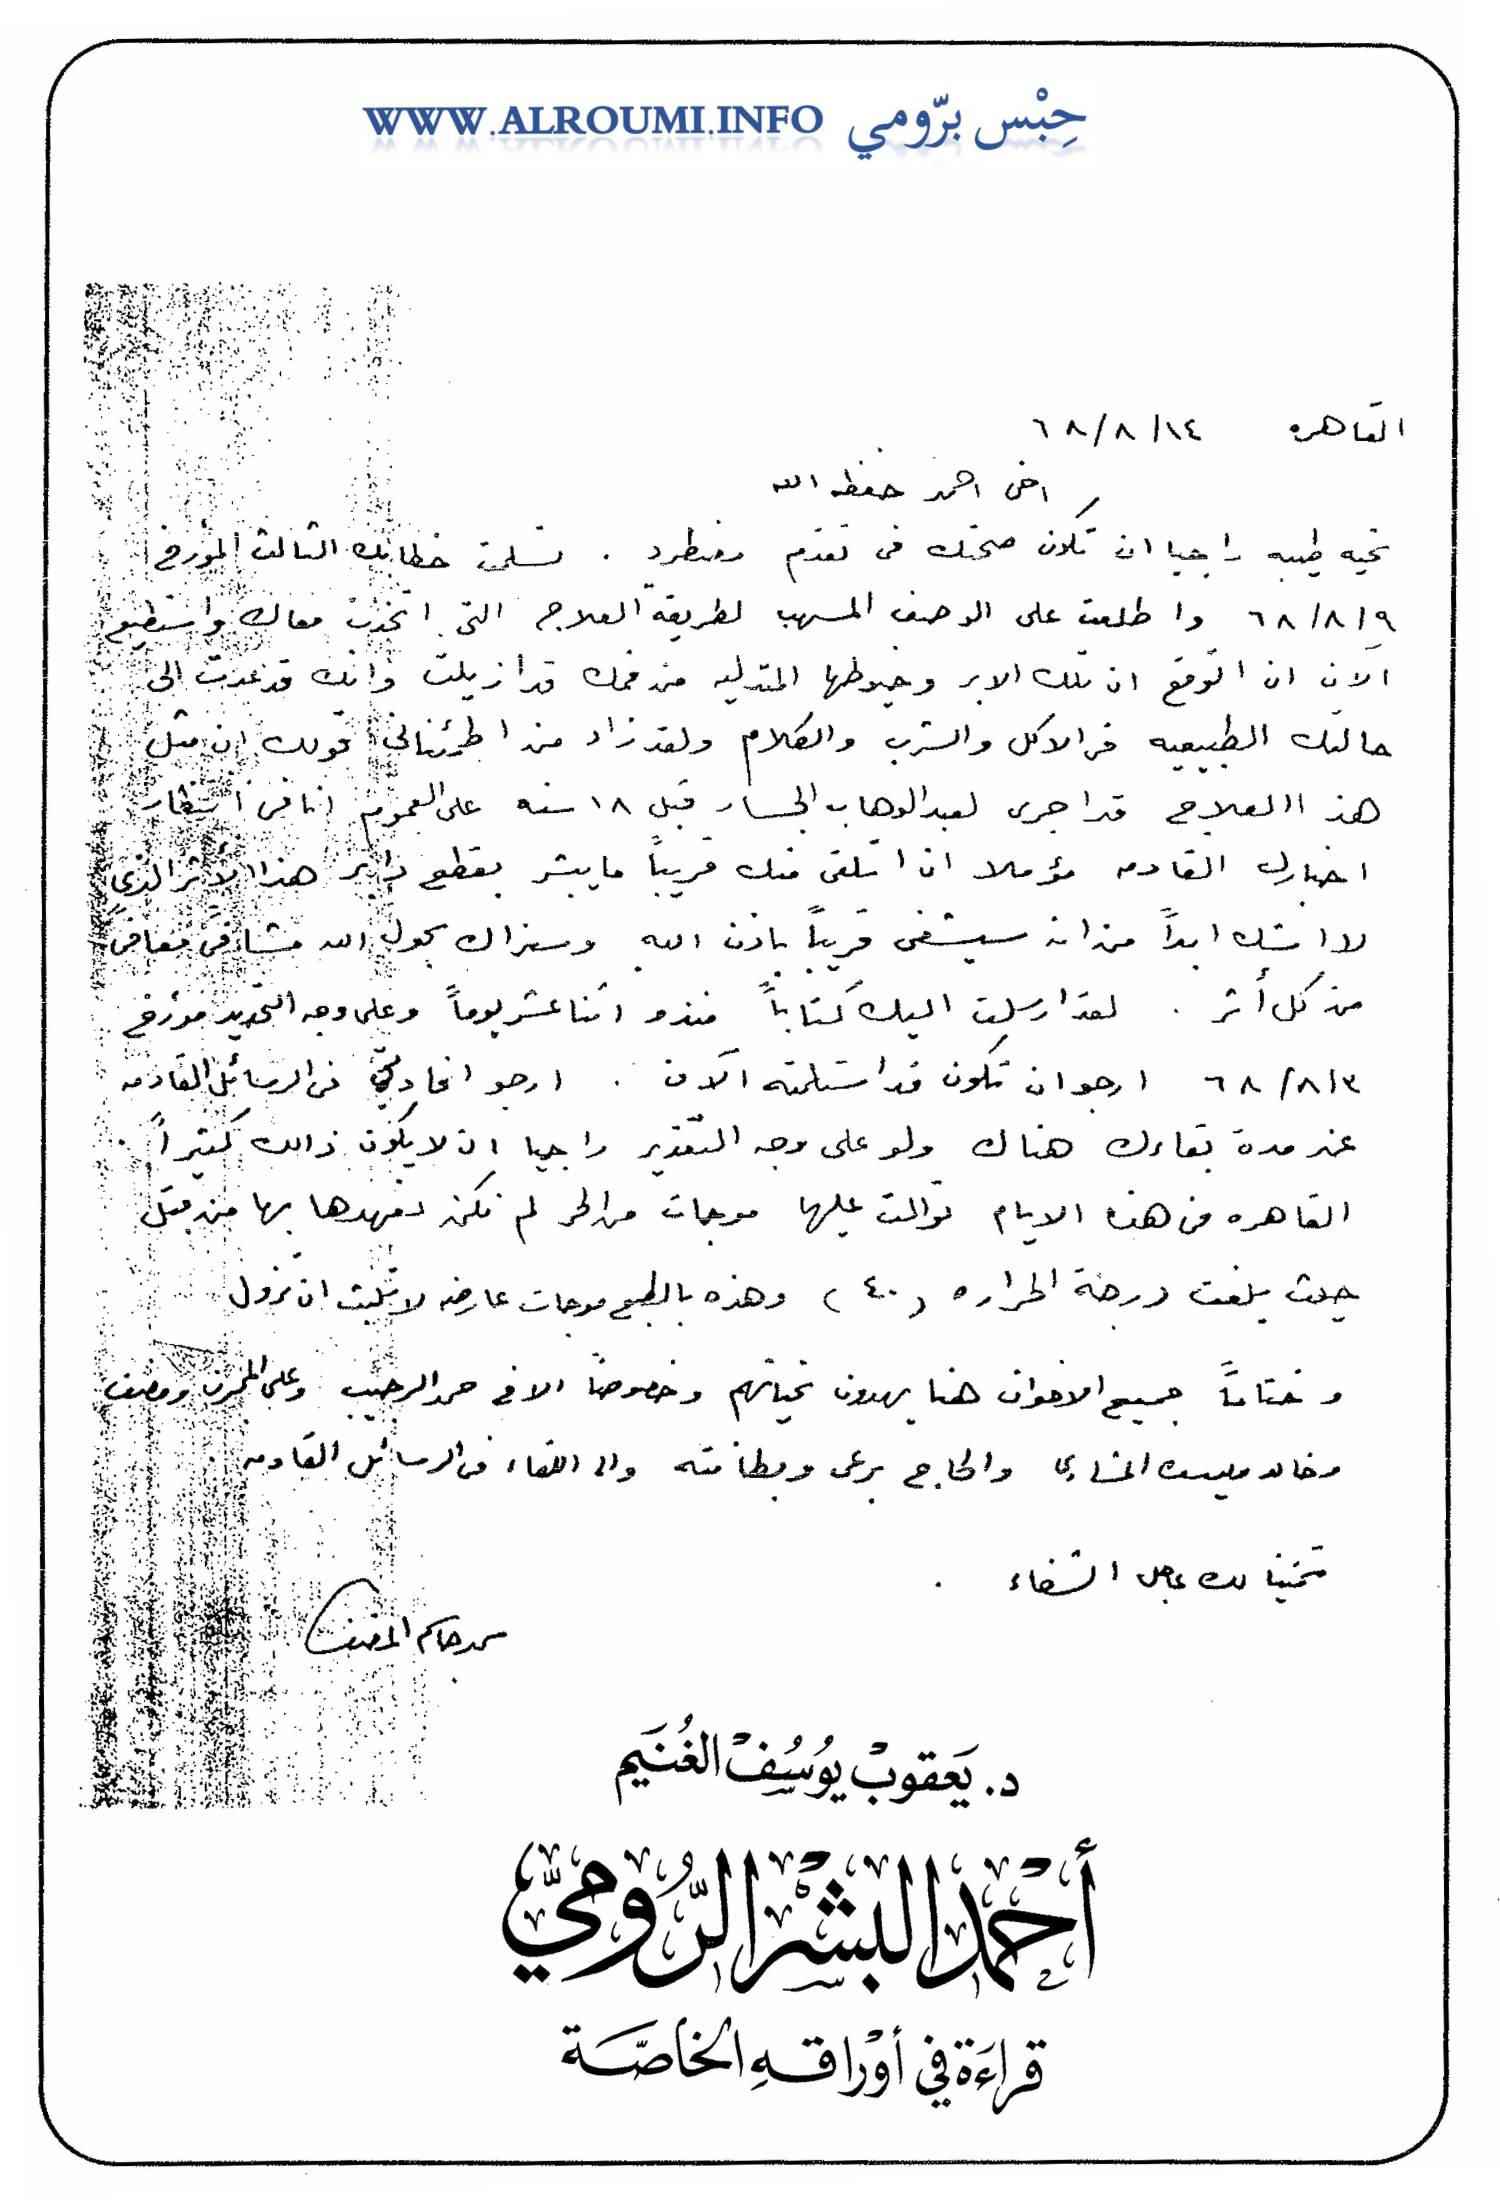 WWW.ALROUMI.INFO حِبْس برّومي
القاهره ٦٨/٨/١٤
اخى احمد حفظه الله
تحيه طيبه راجيا ان تكون صحتك فى تقدم مضطرد . تسلمت خطابك الثالث المؤرخ
٦٨/٨/٩ واطلعت على الوصف المسهب لطريقة العلاج التى اتخذت معاك واستطيع
الآن ان اتوقع ان تلك الابر وخيوطها المتدليه من فمك قد ازيلت وانك قد عدت الى
حالتك الطبيعيه فى الاكل والشرب والكلام ولقد زاد من اطمئنانى قولك ان مثل
هذا العلاج قد اجرى لعبدالوهاب الجسار قبل ١٨ سنه على العموم انا فى انتظار
اخبارك القادمه مؤملا ان اتلقى منك قريباً مايبشر بقطع دابر هذا الأثر الذى
لا اشك ابداً من انه سيشفى قريباً باذن الله وسنراك بحول الله مشافىً معافىً
من كل أثر . لقد ارسلت اليك كتاباً منذو اثنا عشر يوماً وعلى وجه التحديد مؤرخ
٦٨/٨/٣ ارجو ان تكون قد استلمته الآن . ارجو افادتى فى الرسائل القادمه
عن مدة بقاءك هناك ولو على وجه التقدير راجيا ان لا يكون ذالك كثيراً .
القاهره فى هذه الايام توالت عليها موجات من الحر لم نكن نعهدها بها من قبل
حيث بلغت درجة الحراره (٤٠) وهذه بالطبع موجات عارضه لا تلبث ان تزول
وختاماً جميع الاخوان هنا يهدون تحياتهم وخصوصاً الاخ حمد الرجيب وعلى
وخالد والحاج برعى وبطانته والى اللقاء فى الرسائل القادمه .
متمنيا لك عاجل الشفاء .
د. يَعقوبْ يوُسُفْ الغُنَيم
أحْمَد البشْر الرُّوميّ
قراءَة في أوْراقهِ الخاصَّة